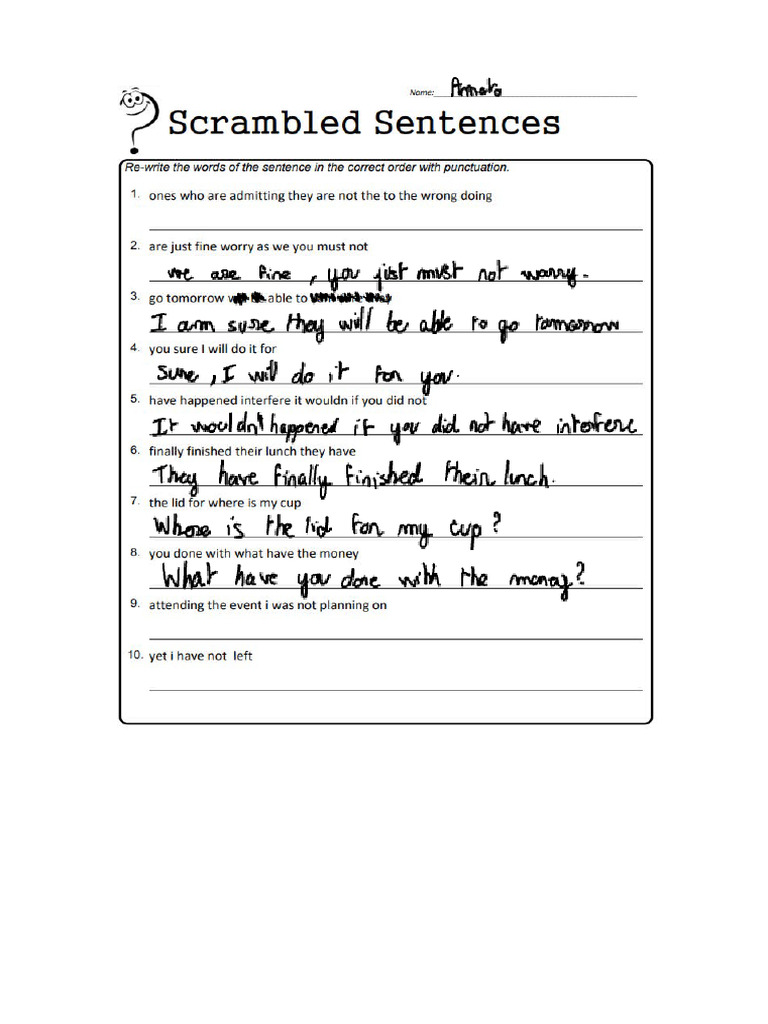 Name: Armaro
Scrambled Sentences
Re-write the words of the sentence in the correct order with punctuation.
1. ones who are admitting they are not the to the wrong doing
2. are just fine worry as we you must not
we are fine, you just must not worry.
3. go tomorrow able to
I am sure they will be able to go tomorrow
4. you sure I will do it for
Sure, I will do it for you.
5. have happened interfere it wouldn if you did not
It wouldn't happened if you did not have interfere
6. finally finished their lunch they have
They have finally finished their lunch.
7. the lid for where is my cup
Where is the lid for my cup?
8. you done with what have the money
What have you done with the money?
9. attending the event i was not planning on
10. yet i have not left